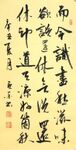 而今識盡愁滋味
欲說還休欲說還
休却道天涼好個秋